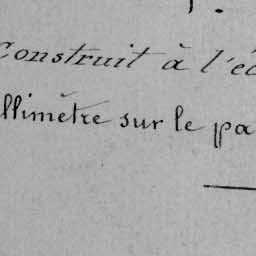 Construit à l'éc
llimètre sur le pa